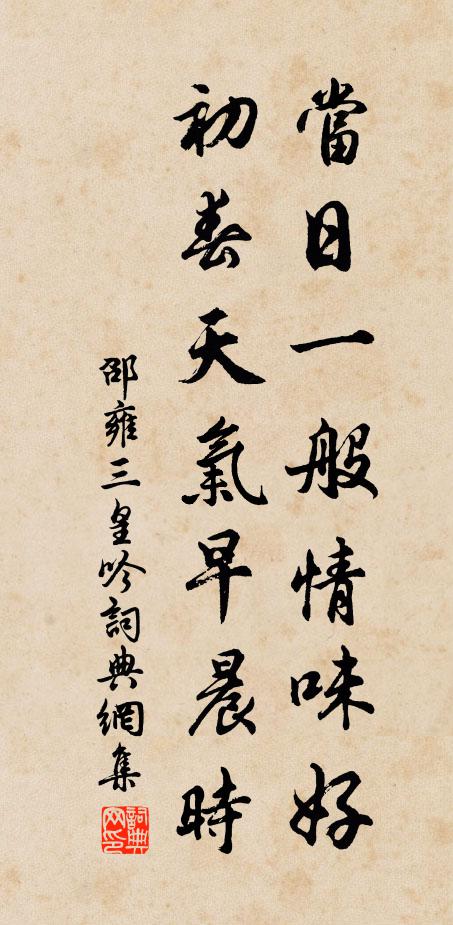 當日一般情味好
初春天氣早晨時
邵雍三皇吟詞典網集
詞典网印